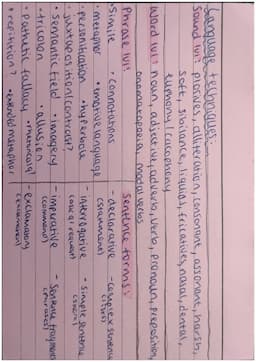 Language techniques:
Sound lvl: plosives, alliteration, consonant, assonant, harsh,
soft, sibilance, liquids, fricatives, nasal, dental,
euphony/cacophony
Word lvl: noun, adjective, adverb, verb, pronoun, preposition,
onomatopoeia, modal verbs
Phrase lvl:
• Simile
• connotations
• metaphor
• emotive language
• personification
• hyperbole
juxtaposition/contrast?
• semantic field
• imagery
• tricolon
• allusion
• Pathetic fallacy
• repetition?
• extended metaphor
Sentence forms:
- declarative
(statement)
- complex sentence
- interrogative
- simple sentence
- imperative
(command)
- sentence fragments
- exclamatory